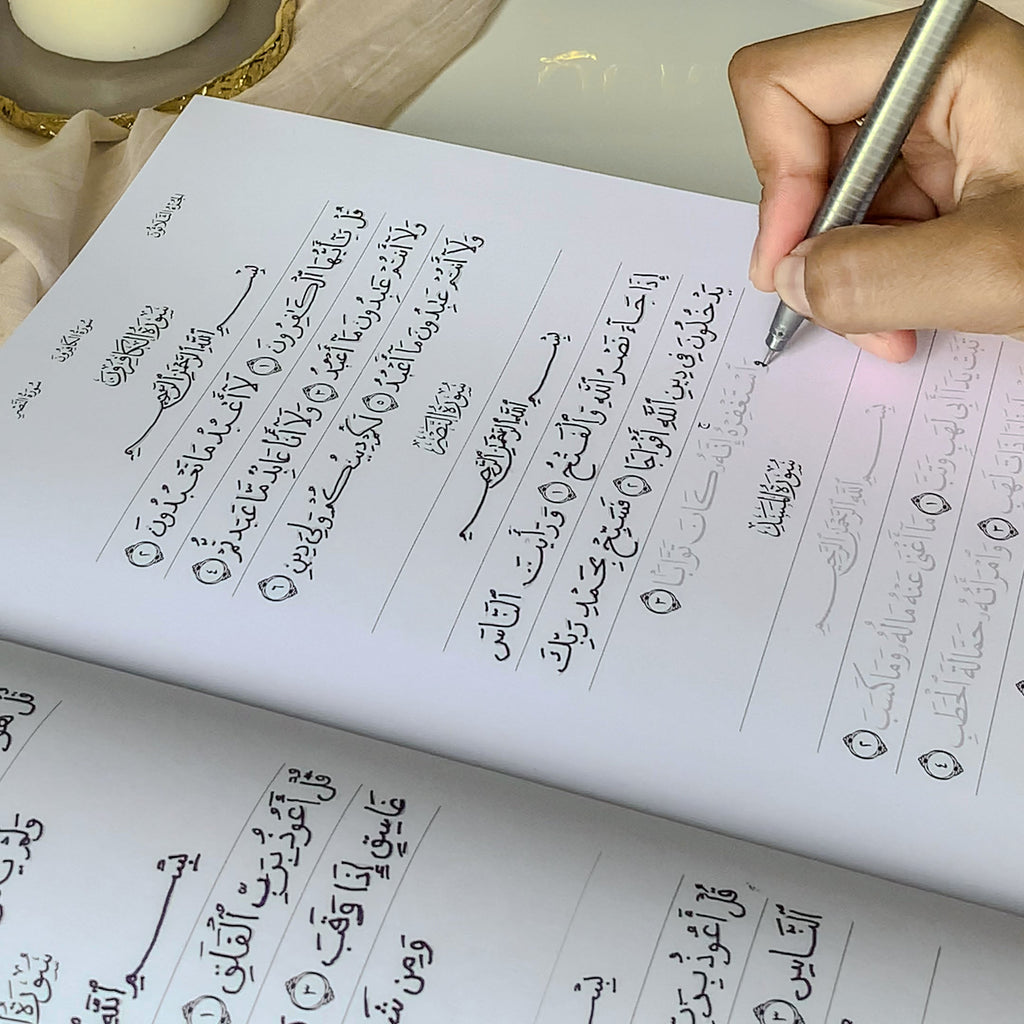 الجزء الثلاثون
سورة الكافرون
سورة النصر
سُورَةُ الكَافِرُونَ
بِسْمِ ٱللَّهِ ٱلرَّحْمَٰنِ ٱلرَّحِيمِ
قُلْ يَٰٓأَيُّهَا ٱلْكَٰفِرُونَ ١ لَآ أَعْبُدُ مَا تَعْبُدُونَ ٢
وَلَآ أَنتُمْ عَٰبِدُونَ مَآ أَعْبُدُ ٣ وَلَآ أَنَا۠ عَابِدٌ مَّا عَبَدتُّمْ ٤
وَلَآ أَنتُمْ عَٰبِدُونَ مَآ أَعْبُدُ ٥ لَكُمْ دِينُكُمْ وَلِيَ دِينِ ٦
سُورَةُ النَّصْرِ
بِسْمِ ٱللَّهِ ٱلرَّحْمَٰنِ ٱلرَّحِيمِ
إِذَا جَآءَ نَصْرُ ٱللَّهِ وَٱلْفَتْحُ ١ وَرَأَيْتَ ٱلنَّاسَ
يَدْخُلُونَ فِى دِينِ ٱللَّهِ أَفْوَاجًا ٢ فَسَبِّحْ بِحَمْدِ رَبِّكَ
وَٱسْتَغْفِرْهُ ۚ إِنَّهُۥ كَانَ تَوَّابًۢا ٣
سُورَةُ المَسَدِ
بِسْمِ ٱللَّهِ ٱلرَّحْمَٰنِ ٱلرَّحِيمِ
تَبَّتْ يَدَآ أَبِى لَهَبٍ وَتَبَّ ١ مَآ أَغْنَىٰ عَنْهُ مَالُهُۥ وَمَا كَسَبَ ٢
ذَاتَ لَهَبٍ ٣ وَٱمْرَأَتُهُۥ حَمَّالَةَ ٱلْحَطَبِ ٤
قُلْ هُوَ
سُورَةُ
بِسْمِ ٱللَّهِ
قُلْ أَعُوذُ بِرَبِّ ٱلْفَلَقِ ١
غَاسِقٍ إِذَا وَقَبَ ٣
وَمِن
بِسْمِ
قُلْ أَعُوذُ بِرَبِّ
ٱلنَّاسِ ٣